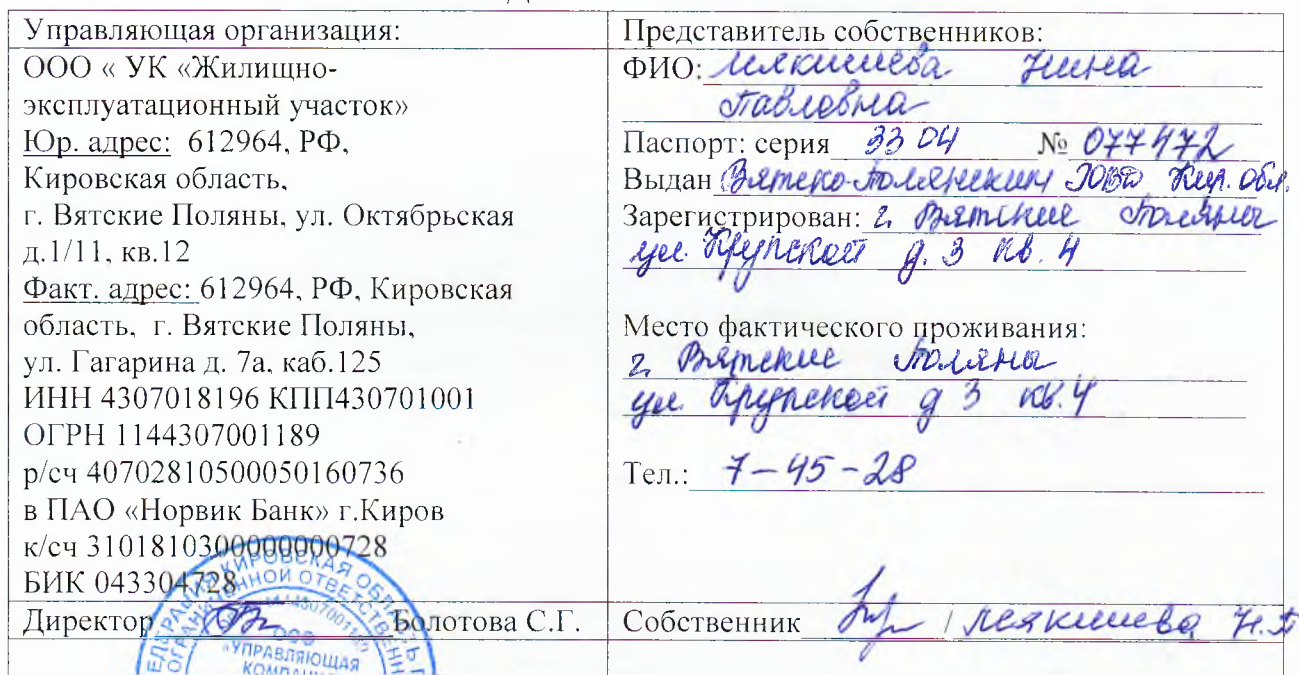 Управляющая организация:
ООО « УК «Жилищно-
эксплуатационный участок»
Юр. адрес: 612964, РФ,
Кировская область,
г. Вятские Поляны, ул. Октябрьская
д.1/11, кв.12
Факт. адрес: 612964, РФ, Кировская
область, г. Вятские Поляны,
ул. Гагарина д. 7а, каб.125
ИНН 4307018196 КПП430701001
ОГРН 1144307001189
р/сч 40702810500050160736
в ПАО «Норвик Банк» г.Киров
к/сч 3101810300000000728
БИК 043304728
Директор Болотова С.Г.
Представитель собственников:
ФИО: Мякишева Нина
Павловна
Паспорт: серия 33 04 № 077472
Выдан Вятско-Полянским ГОВД Кир. обл.
Зарегистрирован: г. Вятские Поляны
ул. Крупской д. 3 кв. 4
Место фактического проживания:
г. Вятские Поляны
ул. Крупской д 3 кв. 4
Тел.: 7-45-28
Собственник / Мякишева Н.П
КИРОВСКАЯ ОБЛАСТЬ
ООО
"УПРАВЛЯЮЩАЯ